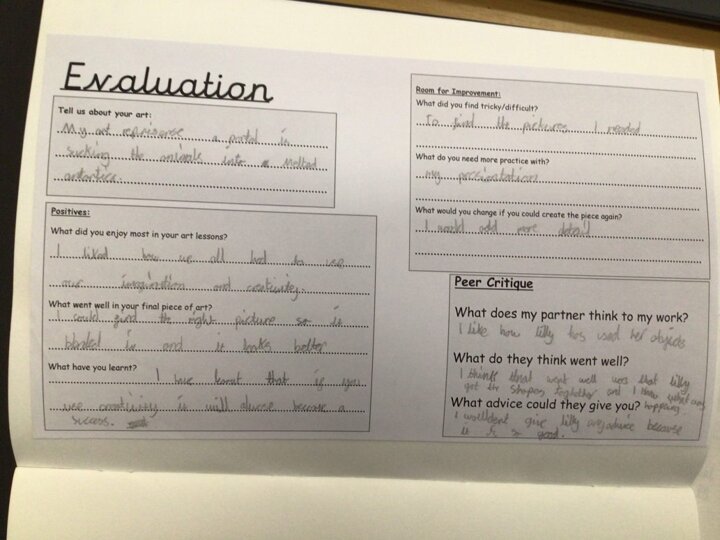 Evaluation
Tell us about your art:
My art reprisense a portal is
sucking the animals into a melted
antartica.
Positives:
What did you enjoy most in your art lessons?
I liked how we all had to use
our imagination and creativity.
What went well in your final piece of art?
I could find the right picture so it
blended in and it looks better
What have you learnt?
I have learnt that if you
use creativity it will become a
success.
Room for Improvement:
What did you find tricky/difficult?
To find the pictures I needed
What do you need more practice with?
my presentation
What would you change if you could create the piece again?
I would add more detail
Peer Critique
What does my partner think to my work?
I like how lilly has used her objects
What do they think went well?
I think that went well was that lilly
got the shapes together and I knew what was
happening.
What advice could they give you?
I woulldent give lilly any advice because
it is so good.